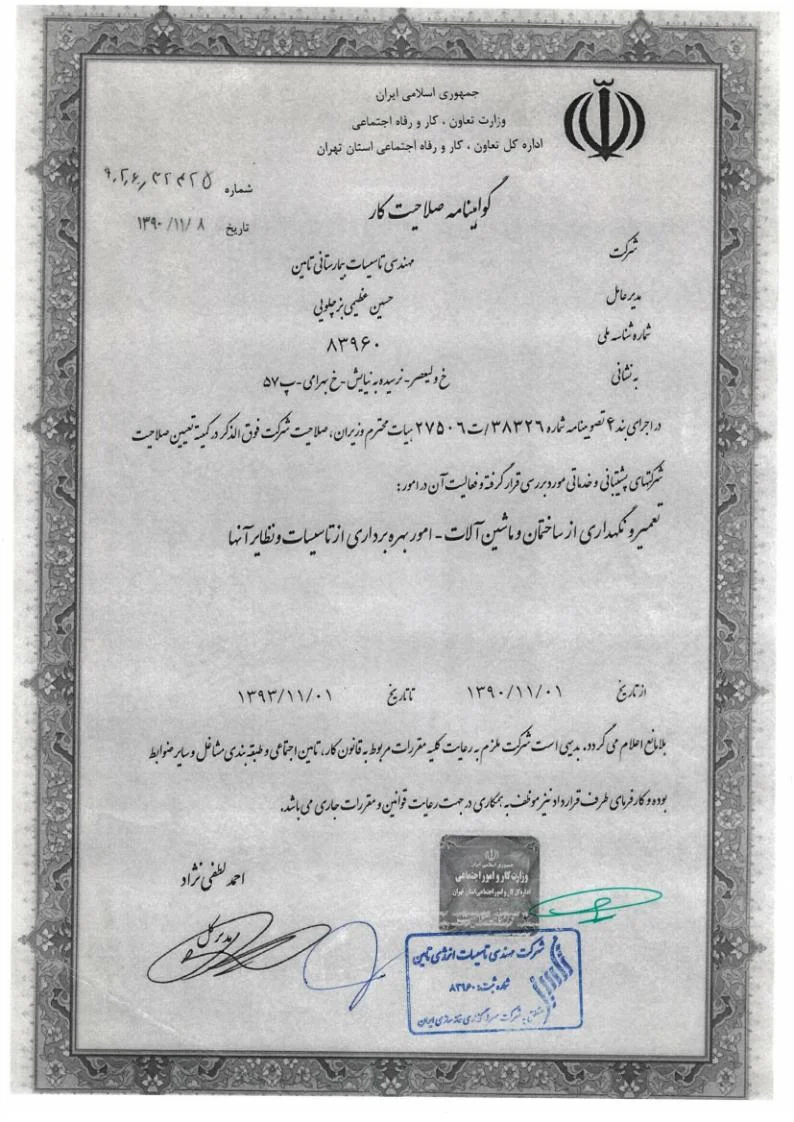 جمهوری اسلامی ایران
وزارت تعاون ، کار و رفاه اجتماعی
اداره کل تعاون ، کار و رفاه اجتماعی استان تهران
شماره
تاریخ ۱۳۹۰/۱۱/۸
گواهینامه صلاحیت کار
شرکت مهندی تاسیسات بیمارستانی تامین
مدیرعامل حسین عظیمی بزچلویی
شماره شناسه ملی ۸۳۹۶۰
به نشانی خ ولیعصر - نرسیده به نیایش - خ بهرامی - پ ۵۷
در اجرای بند ۴ تصویبنامه شماره ۳۸۳۲۶/ت ۲۷۵۰۶ هیات محترم وزیران، صلاحیت شرکت فوق الذکر در کمیته تعیین صلاحیت
شرکتهای پشتیبانی و خدماتی مورد بررسی قرار گرفته و فعالیت آن در امور :
تعمیر و نگهداری از ساختمان و ماشین آلات - امور بهره برداری از تاسیسات و نظایر آنها
از تاریخ ۱۳۹۰/۱۱/۰۱ تا تاریخ ۱۳۹۳/۱۱/۰۱
بلامانع اعلام می گردد. بدیهی است شرکت ملزم به رعایت کلیه مقررات مربوط به قانون کار، تامین اجتماعی و طبقه بندی مشاغل و سایر ضوابط
بوده و کارفرمای طرف قرارداد نیز موظف به همکاری در جهت رعایت قوانین و مقررات جاری می باشد.
احمد لطفی نژاد
مدیر کل
جمهوری اسلامی ایران
وزارت کار و امور اجتماعی
اداره کل کار و امور اجتماعی استان تهران
شرکت مهندسی تاسیسات انرژی تامین
شماره ثبت: ۸۳۹۶۰
به شرکت سرمایه گذاری خانه سازی ایران